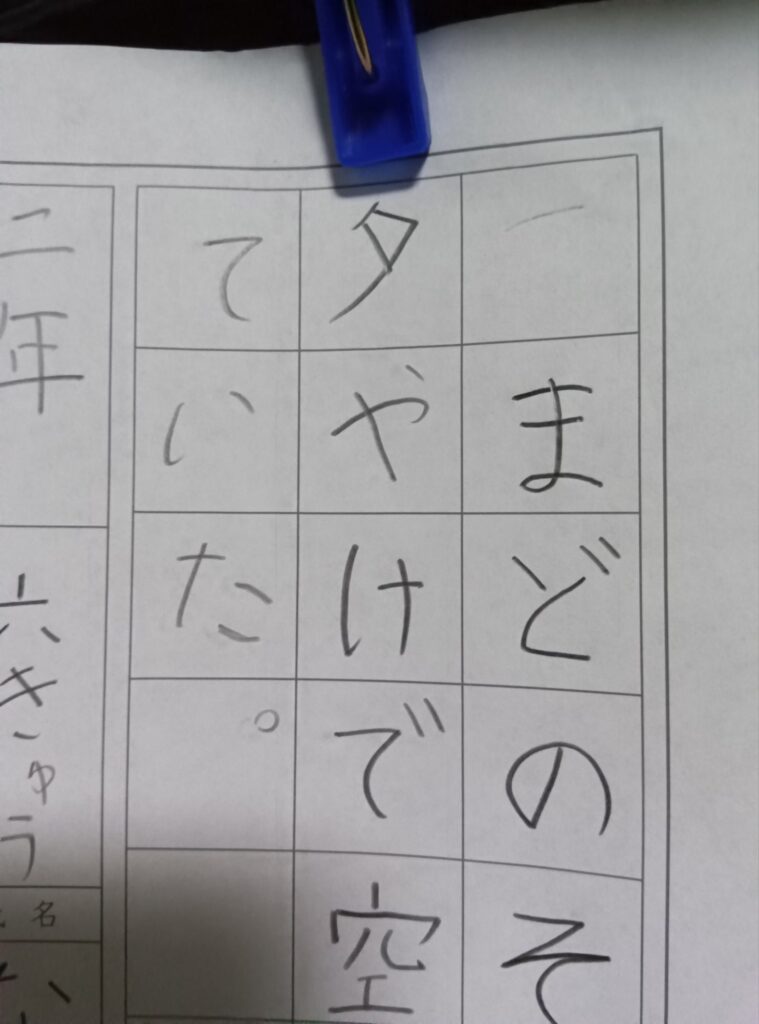 まどのそ
夕やけで空
ていた。
二年
六きゅう
名